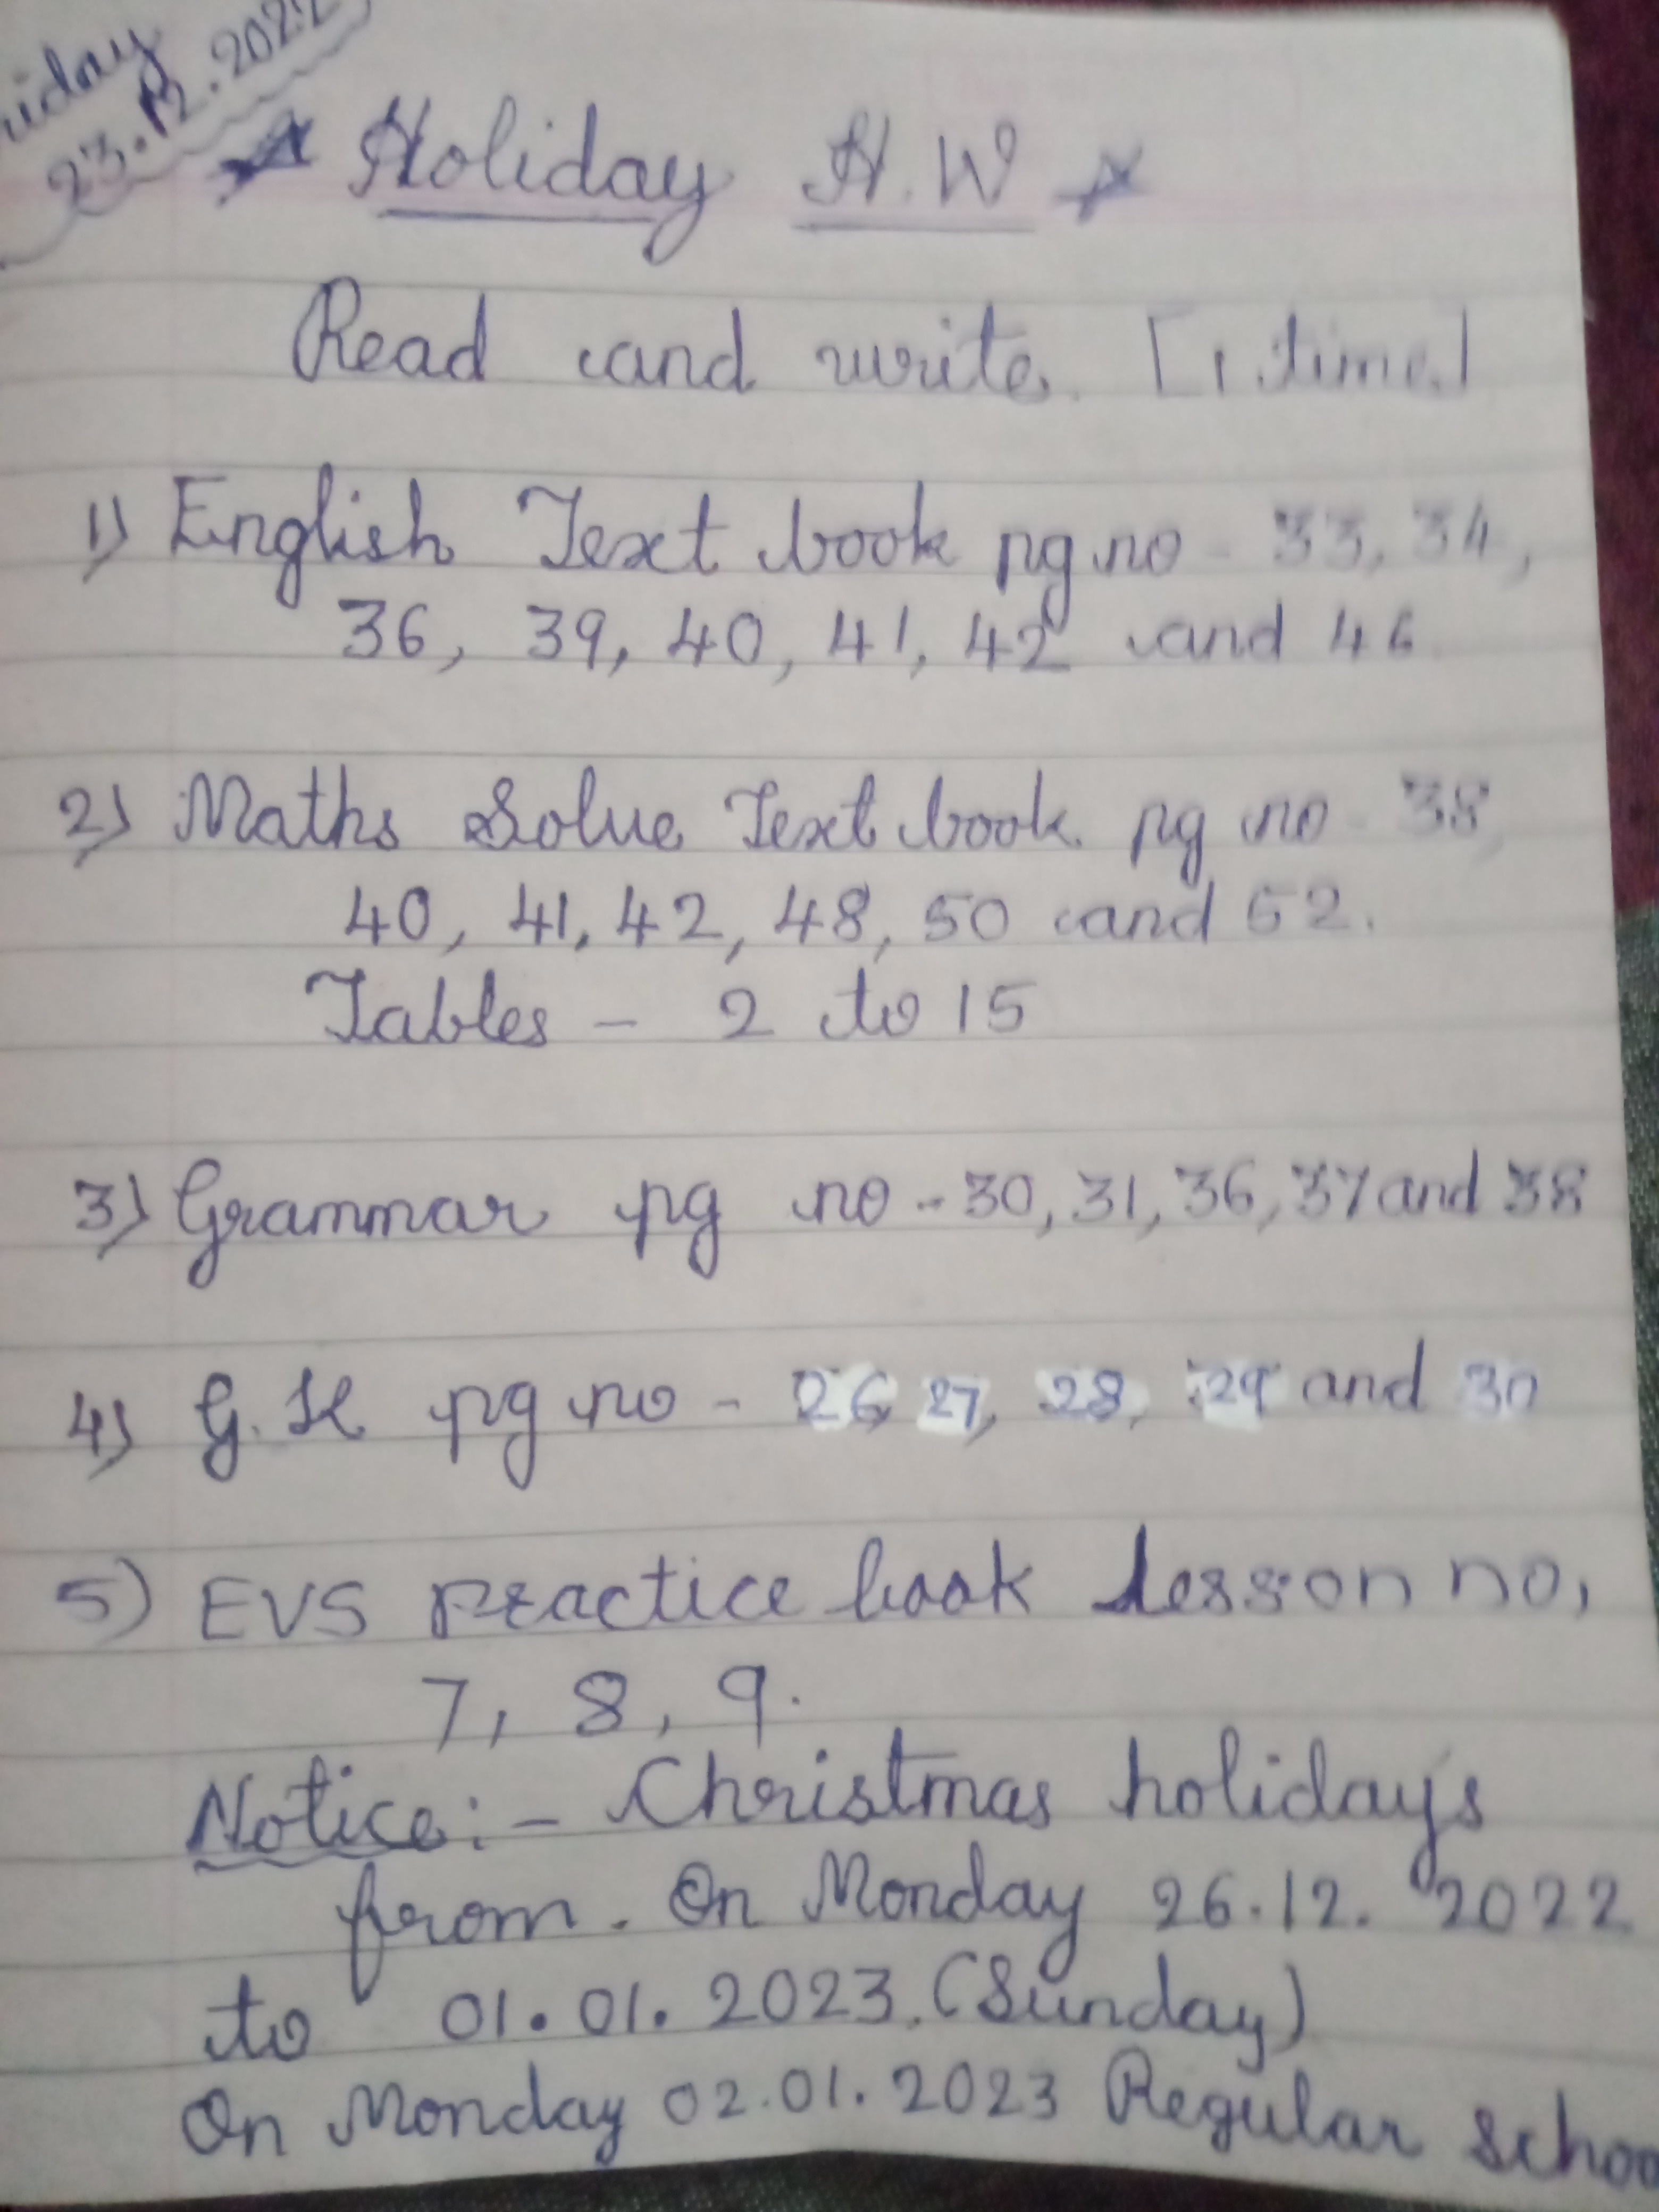 23.12.2022
Holiday H.W
Read and write. [1 time]
1) English Text book pg no - 33, 34,
36, 39, 40, 41, 42 and 46
2) Maths Solve Text book pg no - 38,
40, 41, 42, 48, 50 and 52.
Tables - 2 to 15
3) Grammar pg no - 30, 31, 36, 37 and 38
4) G.K pg no - 26, 27, 28, 29 and 30
5) EVS Practice book Lesson no,
7, 8, 9.
Notice:- Christmas holidays
from. On Monday 26.12.2022
to 01.01.2023. (Sunday)
On Monday 02.01.2023 Regular